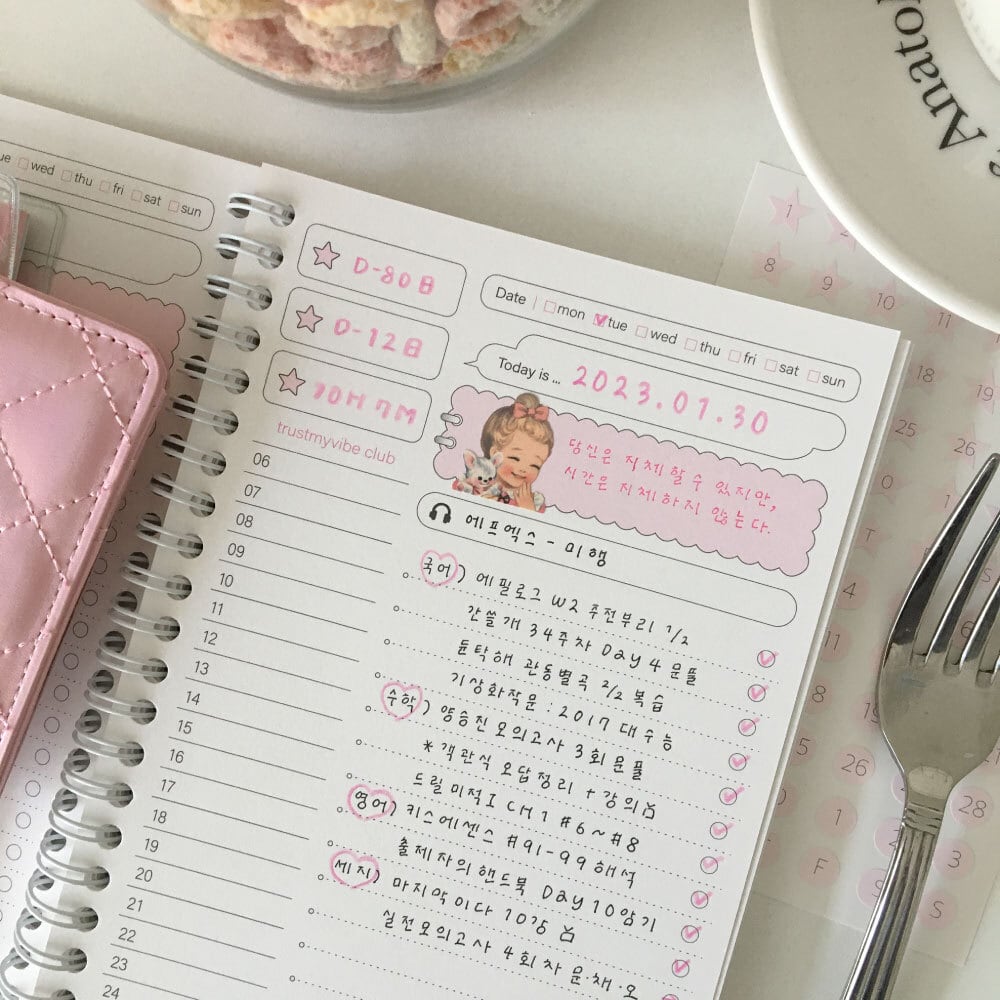 ue wed thu fri sat sun
D-80日
D-12日
10H 7M
trustmyvibe club
Date | mon tue wed thu fri sat sun
Today is ... 2023.01.30
당신은 지체할 수 있지만,
시간은 지체하지 않는다.
에프엑스 - 미행
국어) 에필로그 W2 주전부리 1/2
간쓸개 34주차 Day 4 문풀
듄탁해 관동별곡 2/2 복습
기상화작문 : 2017 대수능
수학) 양승진 모의고사 3회 문풀
* 객관식 오답정리 + 강의
드릴 미적 I CH 1 #6~#8
영어) 키스에센스 #91-99 해석
출제자의 핸드북 Day 10 암기
세지) 마지막이다 10강
실전모의고사 4회차 문·채·오
06
07
08
09
10
11
12
13
14
15
16
17
18
19
20
21
22
23
24
Anato
1
8
9
10
11
18
19
25
26
0
T
11
8
19
5
26
28
1
3
F
S